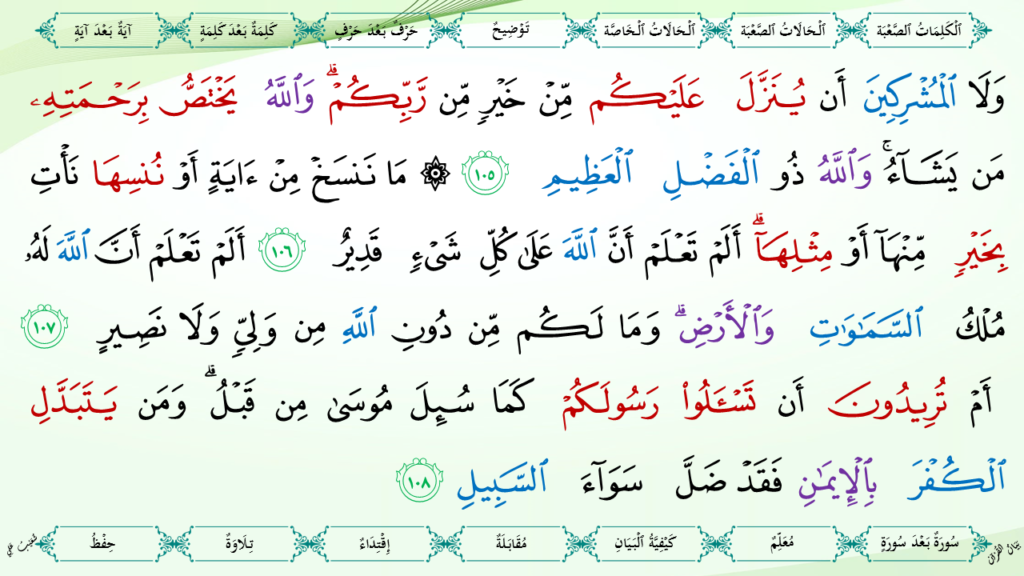 ٱلْكَلِمَاتُ ٱلصَّعْبَة ٱلْحَالَاتُ ٱلصَّعْبَة ٱلْحَالَاتُ ٱلْخَاصَّة تَوْضِيحٌ حَرْفٌ بَعْدَ حَرْفٍ كَلِمَةٌ بَعْدَ كَلِمَةٍ آيَةٌ بَعْدَ آيَةٍ
وَلَا ٱلْمُشْرِكِينَ أَن يُنَزَّلَ عَلَيْكُم مِّنْ خَيْرٍ مِّن رَّبِّكُمْ ۗ وَٱللَّهُ يَخْتَصُّ بِرَحْمَتِهِۦ
مَن يَشَآءُ ۚ وَٱللَّهُ ذُو ٱلْفَضْلِ ٱلْعَظِيمِ ١٠٥ ۞ مَا نَنسَخْ مِنْ ءَايَةٍ أَوْ نُنسِهَا نَأْتِ
بِخَيْرٍ مِّنْهَآ أَوْ مِثْلِهَآ ۗ أَلَمْ تَعْلَمْ أَنَّ ٱللَّهَ عَلَىٰ كُلِّ شَىْءٍ قَدِيرٌ ١٠٦ أَلَمْ تَعْلَمْ أَنَّ ٱللَّهَ لَهُۥ
مُلْكُ ٱلسَّمَٰوَٰتِ وَٱلْأَرْضِ ۗ وَمَا لَكُم مِّن دُونِ ٱللَّهِ مِن وَلِيٍّ وَلَا نَصِيرٍ ١٠٧
أَمْ تُرِيدُونَ أَن تَسْـَٔلُوا۟ رَسُولَكُمْ كَمَا سُئِلَ مُوسَىٰ مِن قَبْلُ ۗ وَمَن يَتَبَدَّلِ
ٱلْكُفْرَ بِٱلْإِيمَٰنِ فَقَدْ ضَلَّ سَوَآءَ ٱلسَّبِيلِ ١٠٨
سُورَةٌ بَعْدَ سُورَةٍ مُعَلِّمٌ كَيْفِيَّةُ ٱلْبَيَانِ مُقَابَلَةٌ إِقْتِدَاءٌ تِلَاوَةٌ حِفْظٌ